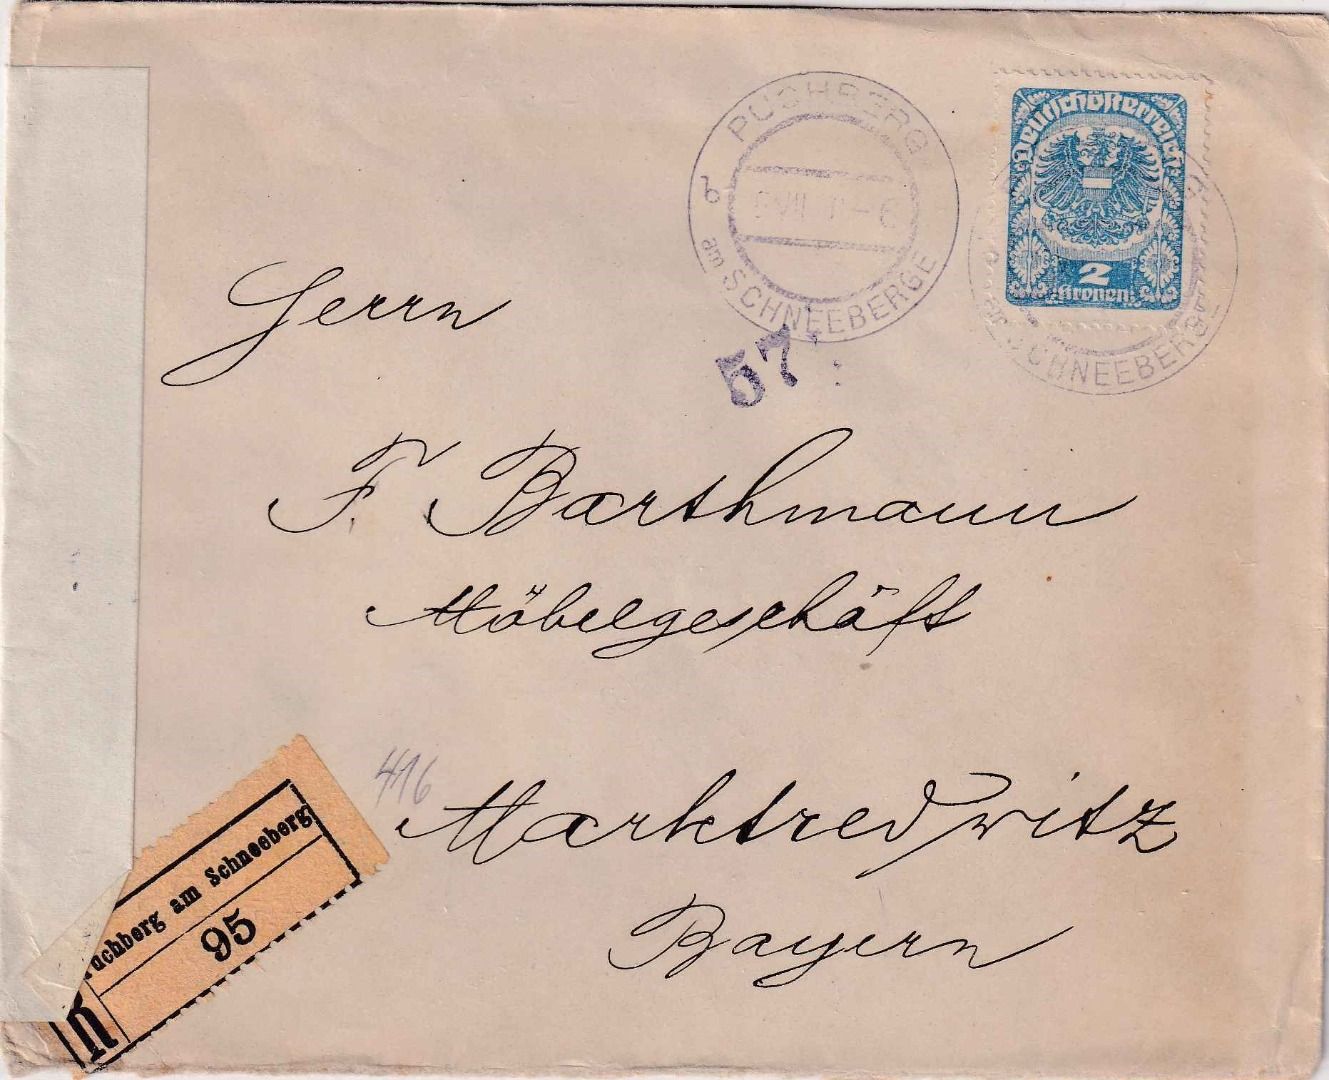 PUCHBERG
b
am SCHNEEBERGE
Deutschösterreich
2
Kronen
SCHNEEBERGE
57
Herrn
F. Barthmann
Möbelgeschäft
416
Marktredwitz
Bayern
R
uchberg am Schneeberg
95